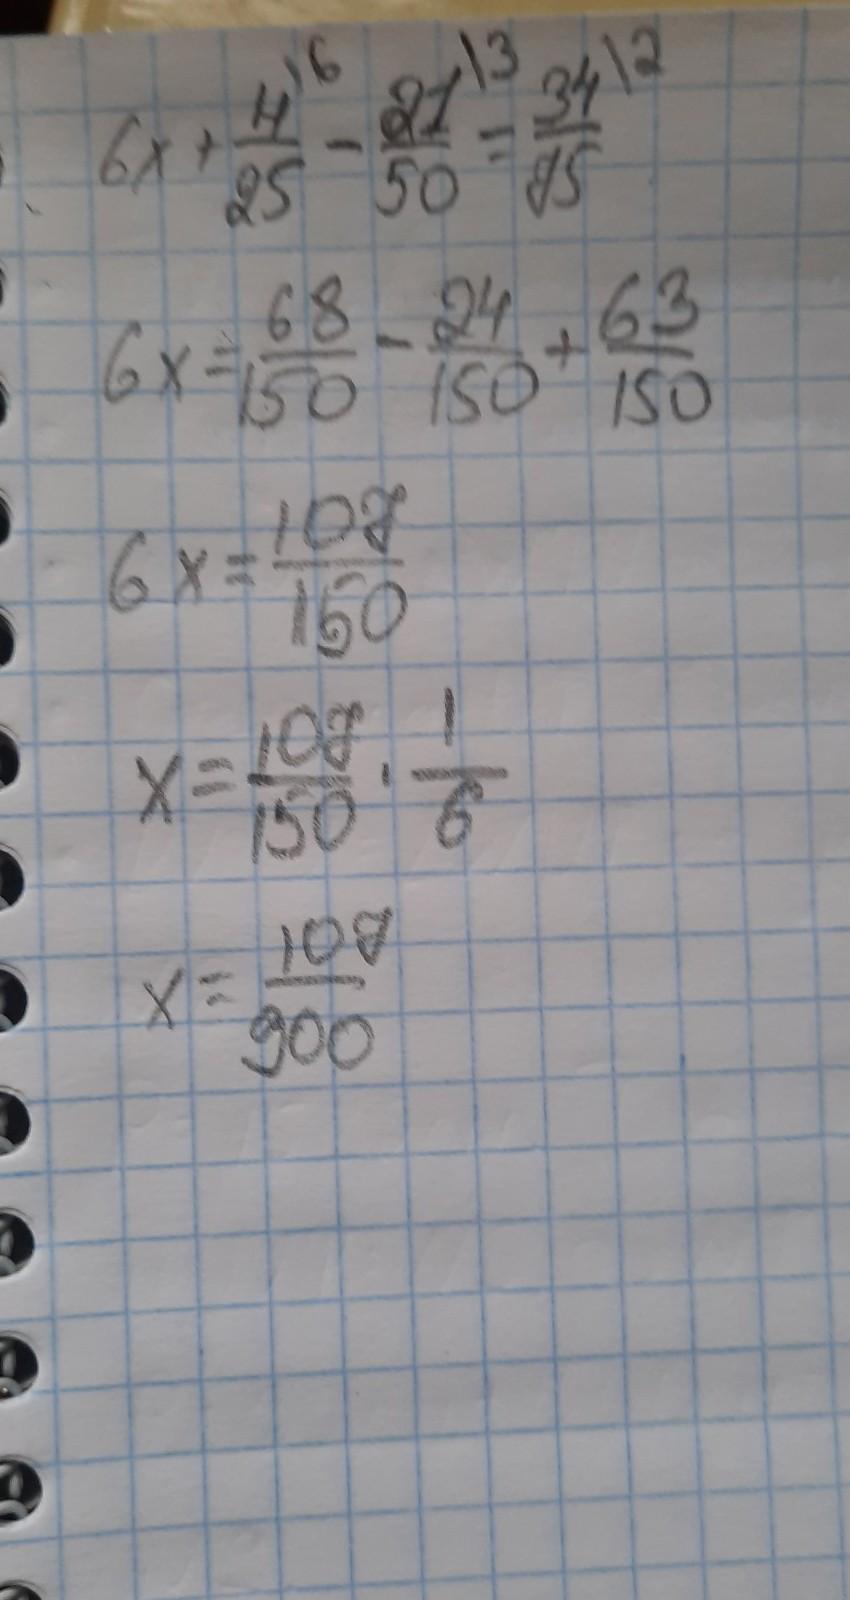 6x + 4/25 \6 - 21/50 \3 = 34/75 \2
6x = 68/150 - 24/150 + 63/150
6x = 107/150
x = 107/150 · 1/6
x = 107/900